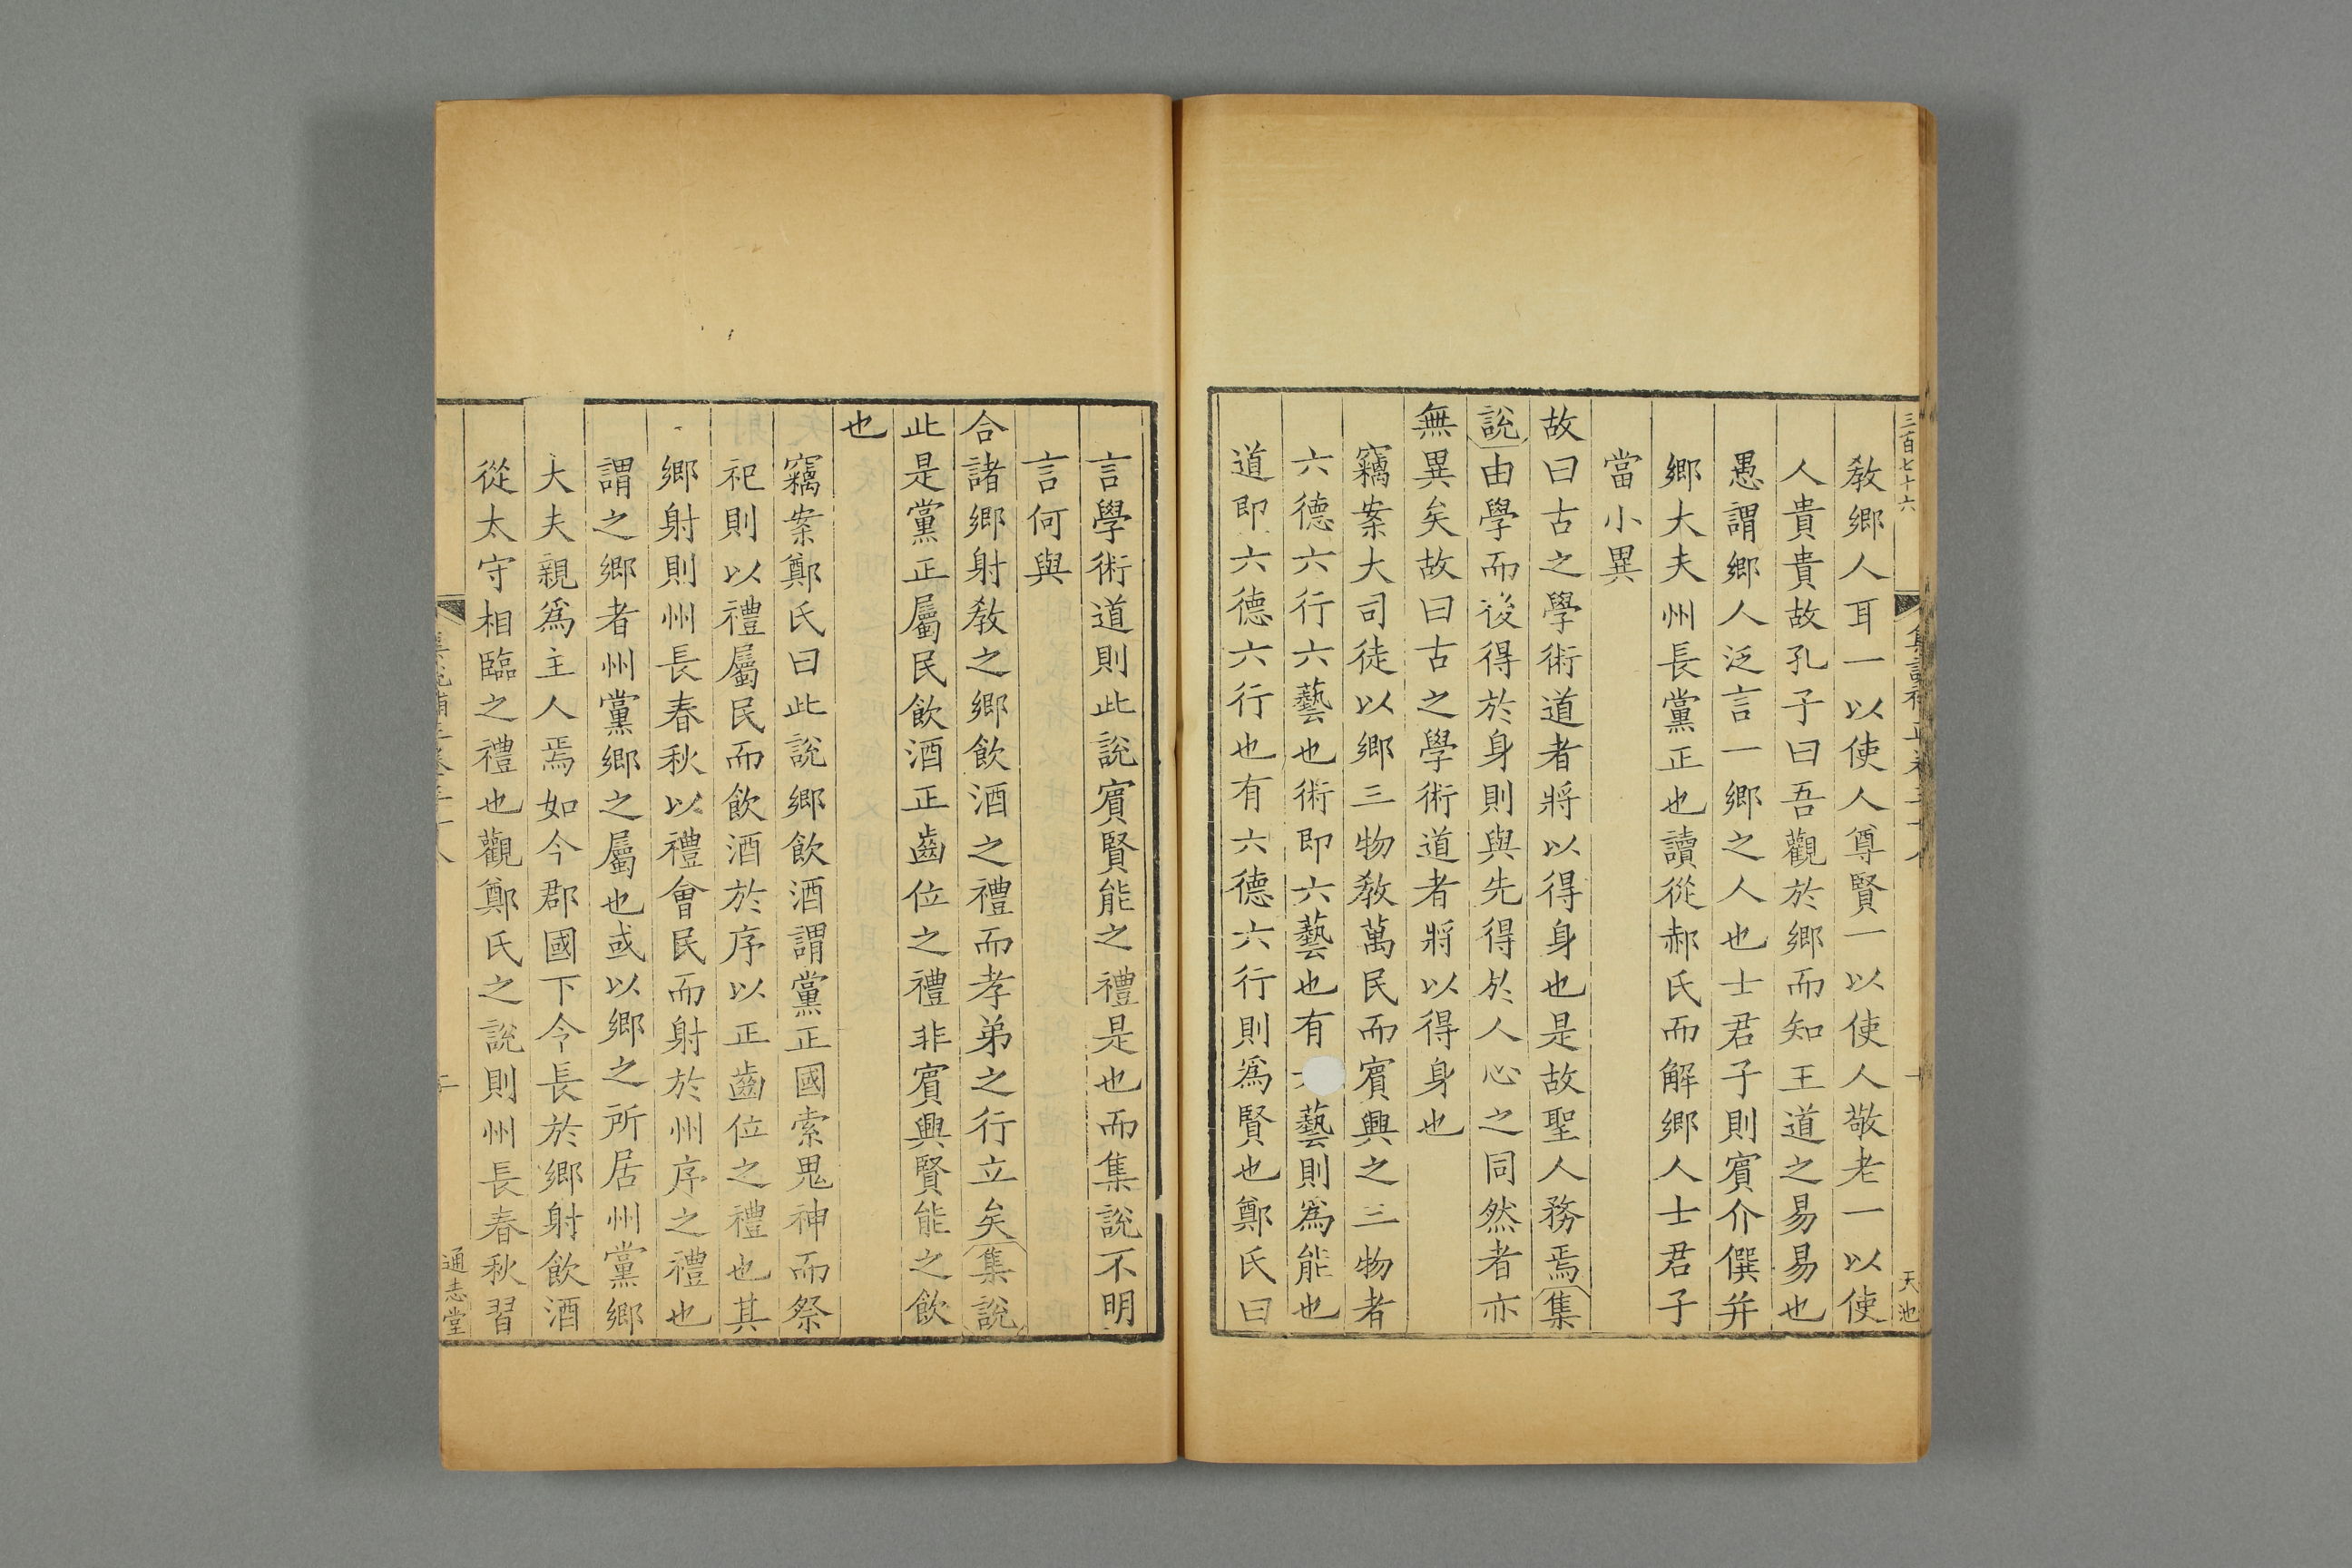 三百七十六
天池
教鄉人耳一以使人尊賢一以使人敬老一以使
人貴貴故孔子曰吾觀於鄉而知王道之易易也
愚謂鄉人泛言一鄉之人也士君子則賓介僎并
鄉大夫州長黨正也讀從郝氏而解鄉人士君子
當小異
故曰古之學術道者將以得身也是故聖人務焉集
說由學而後得於身則與先得於人心之同然者亦
無異矣故曰古之學術道者將以得身也
竊案大司徒以鄉三物教萬民而賓興之三物者
六德六行六藝也術即六藝也有藝則為能也
道即六德六行也有六德六行則為賢也鄭氏曰
言學術道則此說賓賢能之禮是也而集說不明
言何與
合諸鄉射教之鄉飲酒之禮而孝弟之行立矣集說
此是黨正屬民飲酒正齒位之禮非賓興賢能之飲
也
竊案鄭氏曰此說鄉飲酒謂黨正國索鬼神而祭
祀則以禮屬民而飲酒於序以正齒位之禮也其
鄉射則州長春秋以禮會民而射於州序之禮也
謂之鄉者州黨鄉之屬也或以鄉之所居州黨鄉
大夫親為主人焉如今郡國下令長於鄉射飲酒
從太守相臨之禮也觀鄭氏之說則州長春秋習
通志堂